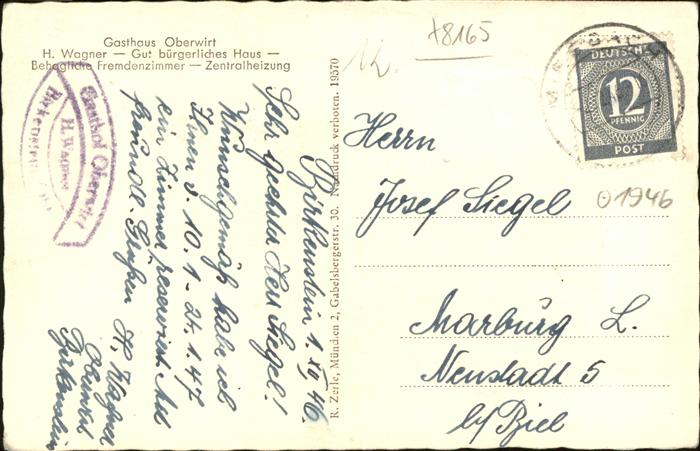 Gasthaus Oberwirt
H. Wagner — Gut bürgerliches Haus —
Behagliche Fremdenzimmer — Zentralheizung
Gasthof Oberwirt
H. Wagner
Birkenstein
Birkenstein 1. XII 46.
Sehr geehrter Herr Siegel!
Wunschgemäß habe ich
Ihnen v. 10.1 - 24.1.47
ein Zimmer reserviert. Mit
freundl. Grüßen H. Wagner
Oberwirt
Birkenstein
R. Zerle, München 2, Gabelsbergerstr. 30. Nachdruck verboten. 19570
+8165
DEUTSCHE
12
PFENNIG
POST
01946
Herrn
Josef Siegel
Marburg L.
Neustadt 5
b/ Biel